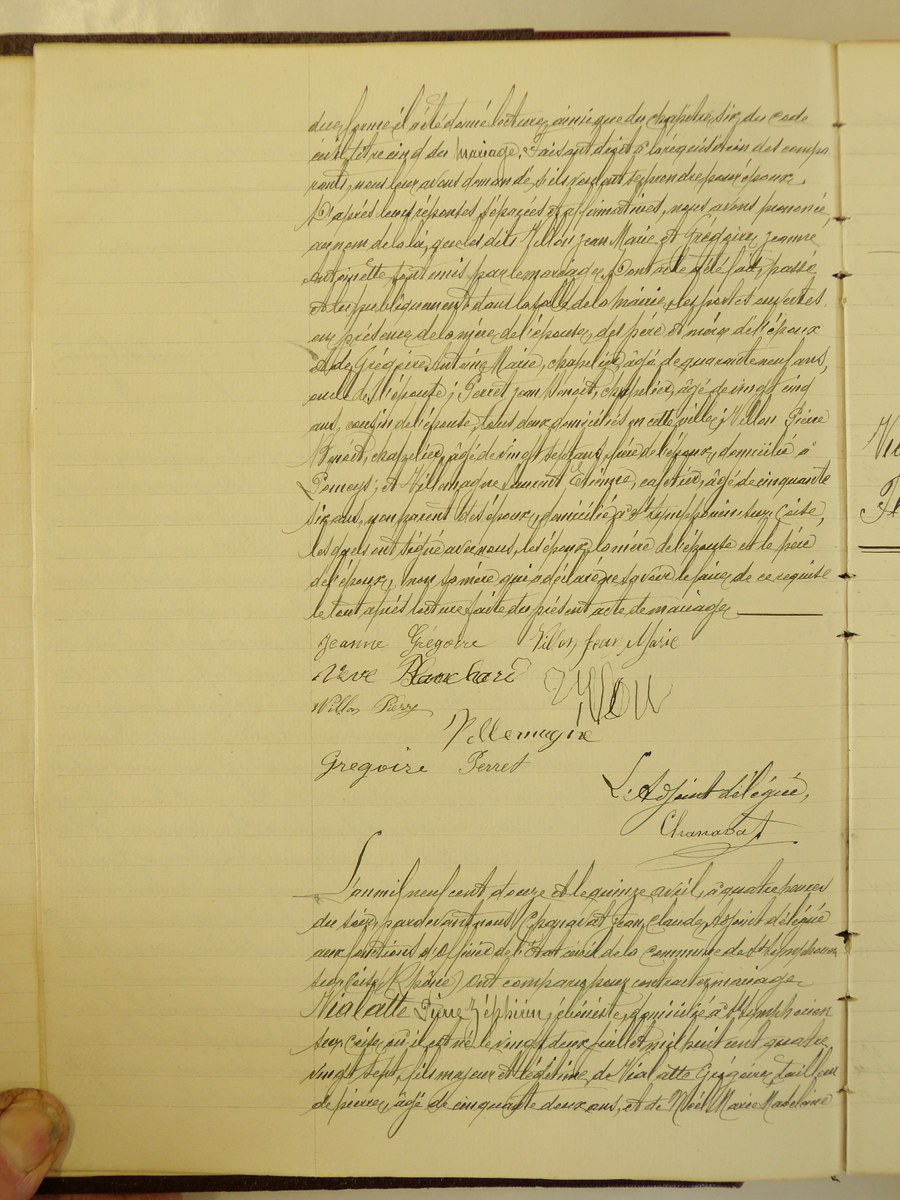 due forme il a été donné lecture, ainsi que du chapitre six du code
civil titre cinq du mariage. Faisant droit à la réquisition des compa
rants, nous leur avons demandé s'ils veulent se prendre pour époux.
D'après leurs réponses séparées et affirmatives, nous avons prononcé,
au nom de la loi, que les dits Villon Jean Marie et Grégoire Jeanne
Antoinette sont unis par le mariage. Dont acte a été fait, passé
et lu publiquement dans la salle de la mairie, les portes ouvertes
en présence de la mère de l'épouse, des père et mère de l'époux
et de Grégoire Antoine Marie, chapelier, âgé de quarante neuf ans,
oncle de l'épouse; Perret Jean Benoît, chapelier, âgé de vingt cinq
ans, cousin de l'épouse, tous deux domiciliés en cette ville; Villon Pierre
Benoît, chapelier, âgé de vingt sept ans, frère de l'époux, domicilié à
Pomeys; et Villemagne Etienne, cafetier, âgé de cinquante
six ans, non parent des époux, domicilié à St Symphorien sur Coise,
lesquels ont signé avec nous, les époux, la mère de l'épouse et le père
de l'époux, non sa mère qui a déclaré ne savoir le faire de ce requise
le tout après lecture faite du présent acte de mariage
Jeanne Grégoire Villon Jean Marie
Vve Blanchard Villon
Villon Pierre
Villemagne
Gregoire Perret
L'Adjoint délégué,
Chanavat
L'an mil neuf cent douze et le quinze avril, à quatre heures
du soir, pardevant nous Chanavat Jean Claude, Adjoint délégué
aux fonctions d'officier de l'Etat civil de la commune de St Symphorien
sur Coise (Rhône) ont comparu pour contracter mariage
Vialatte Pierre Zéphirin, ébéniste, domicilié à St Symphorien
sur Coise, où il est né le vingt deux juillet mil huit cent quatre
vingt sept, fils majeur et légitime de Vialatte Grégoire, tailleur
de pierre, âgé de cinquante deux ans, et de Noël Marie Madeleine